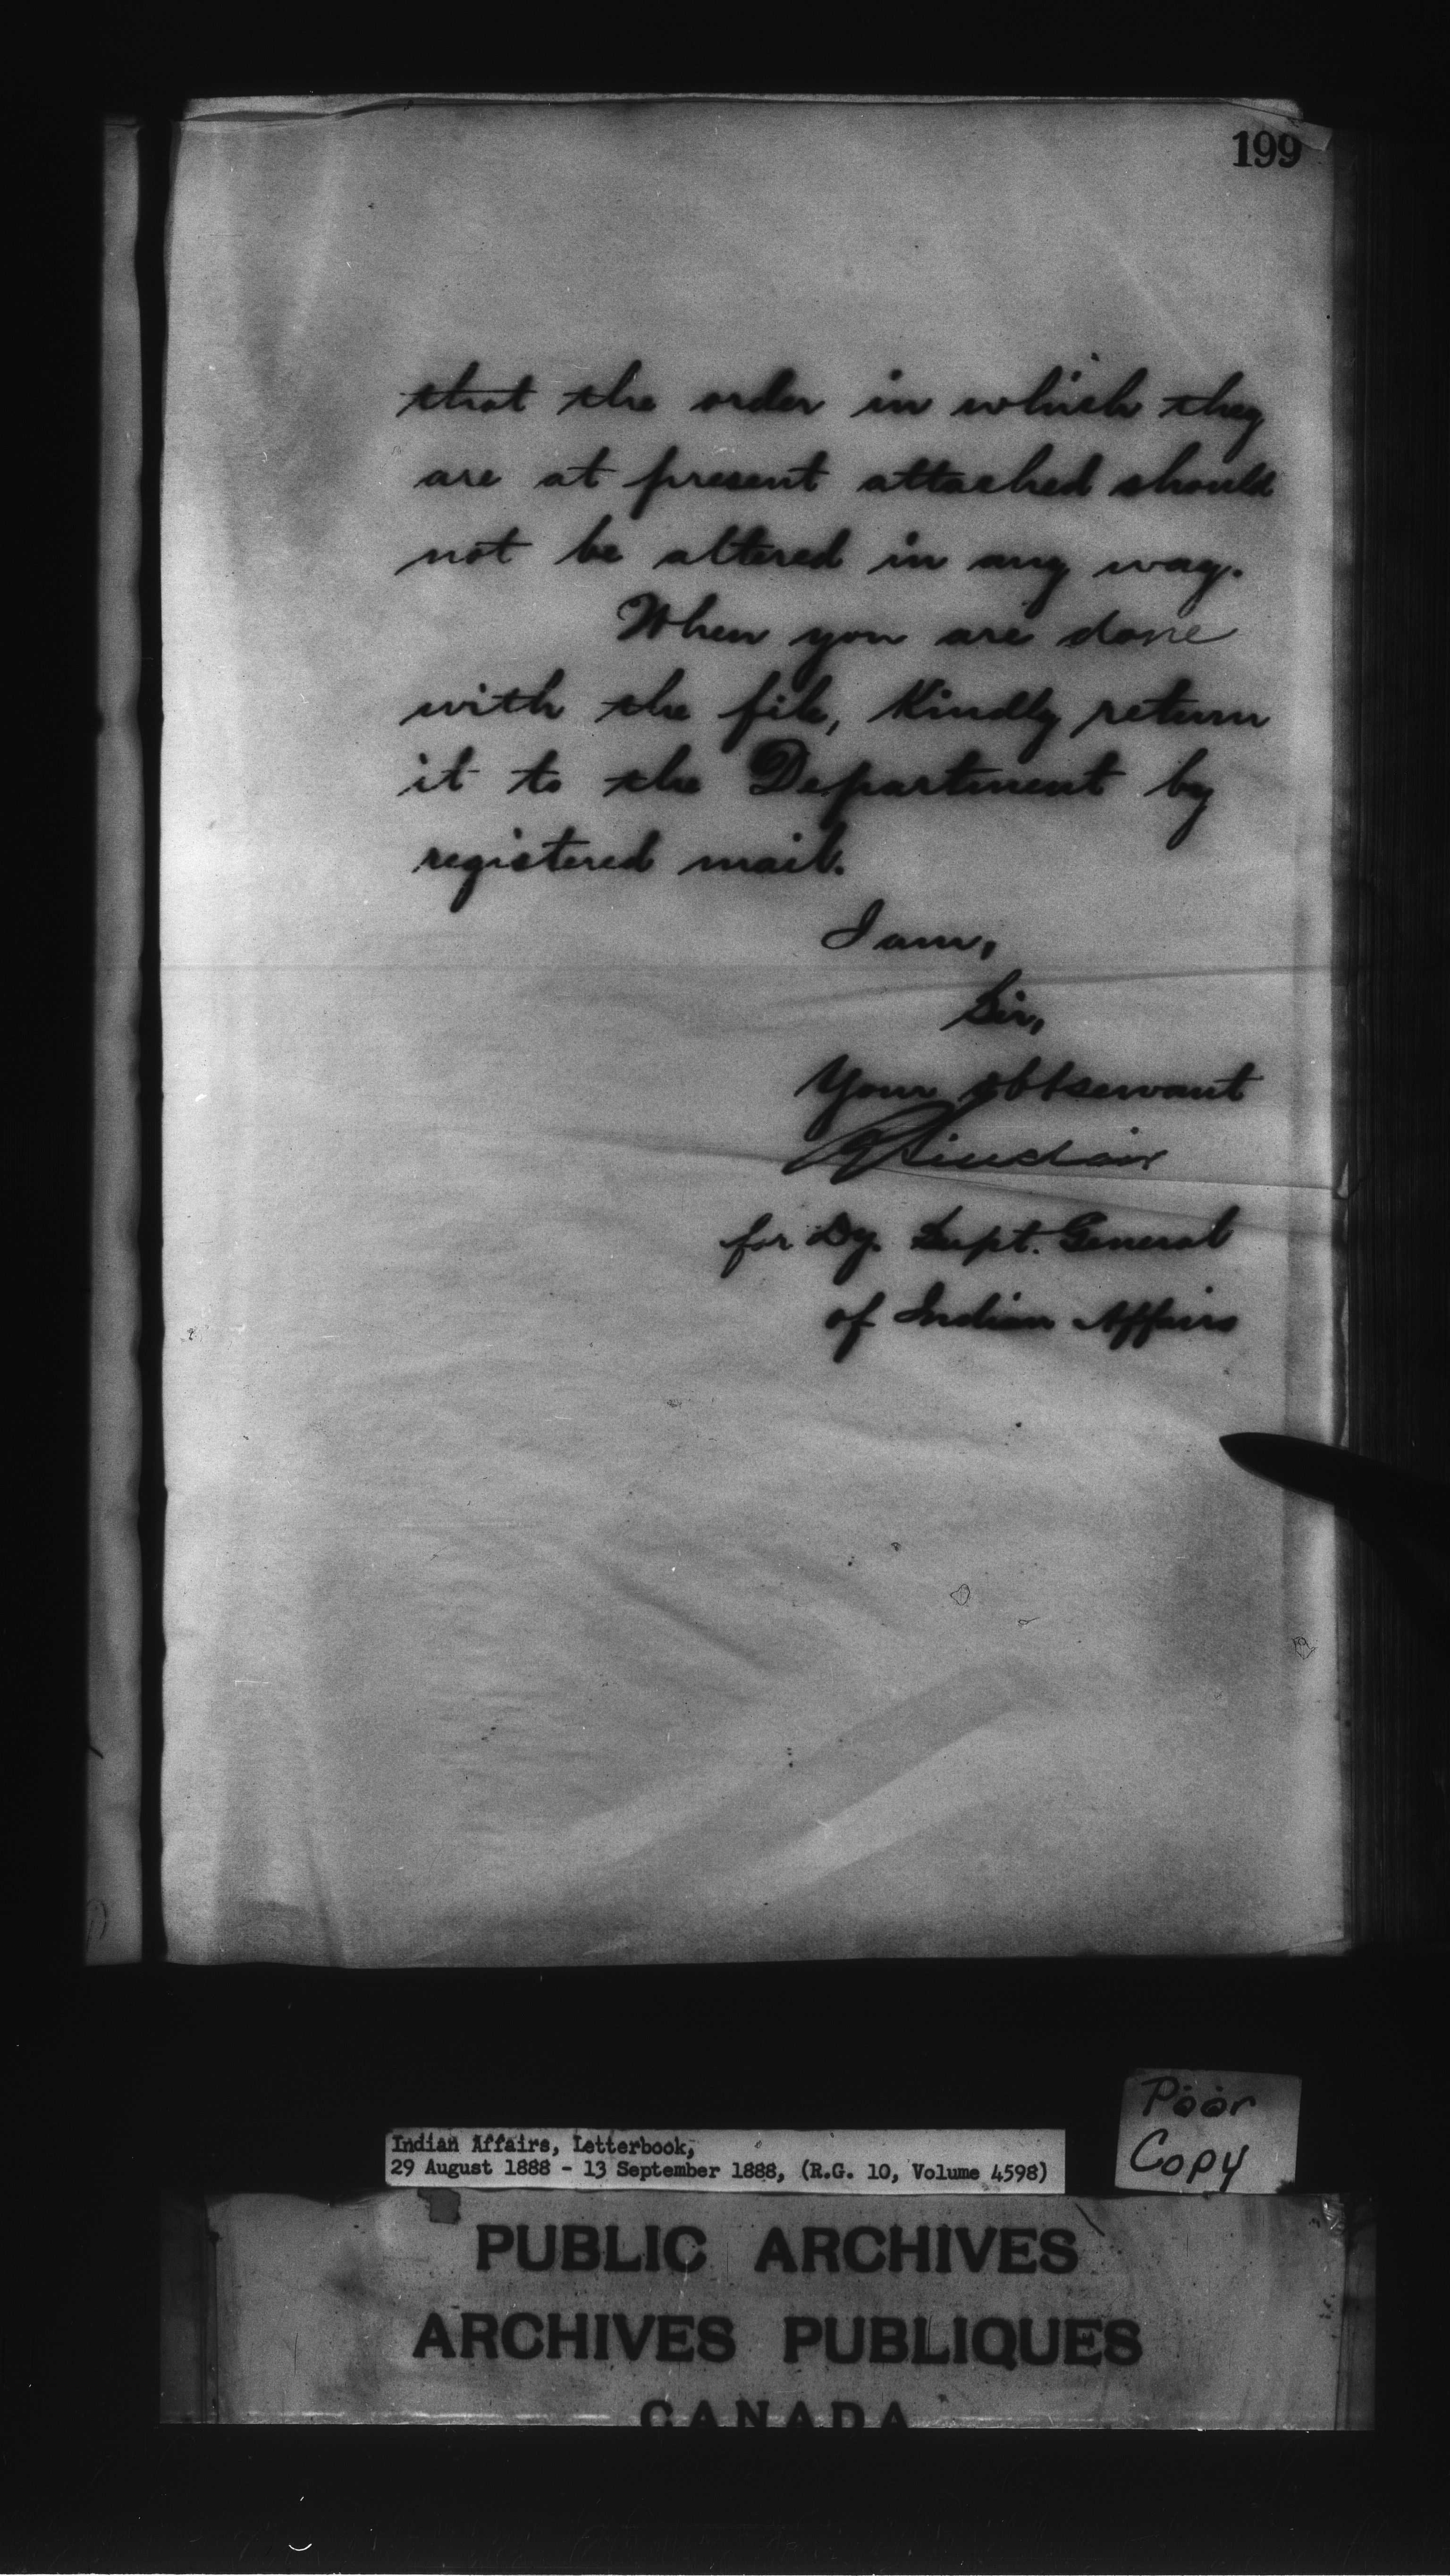 199
that the order in which they
are at present attached should
not be altered in any way.
When you are done
with the file, Kindly return
it to the Department by
registered mail.
I am,
Sir,
Your obt servant
Sinclair
for Dy. Supt. General
of Indian Affairs
Poor
Copy
Indian Affairs, Letterbook,
29 August 1888 - 13 September 1888, (R.G. 10, Volume 4598)
PUBLIC ARCHIVES
ARCHIVES PUBLIQUES
CANADA